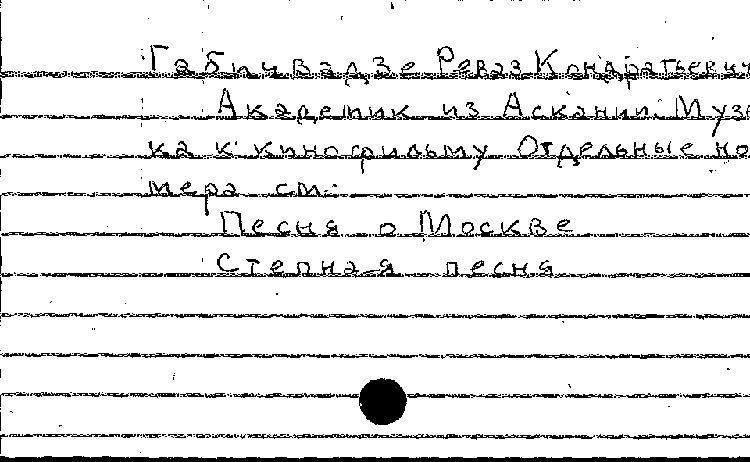 Габичвадзе Реваз Кондратьевич
Академик из Аскании. Музы
ка к кинофильму Отдельные но
мера см:
Песня о Москве
Степная песня